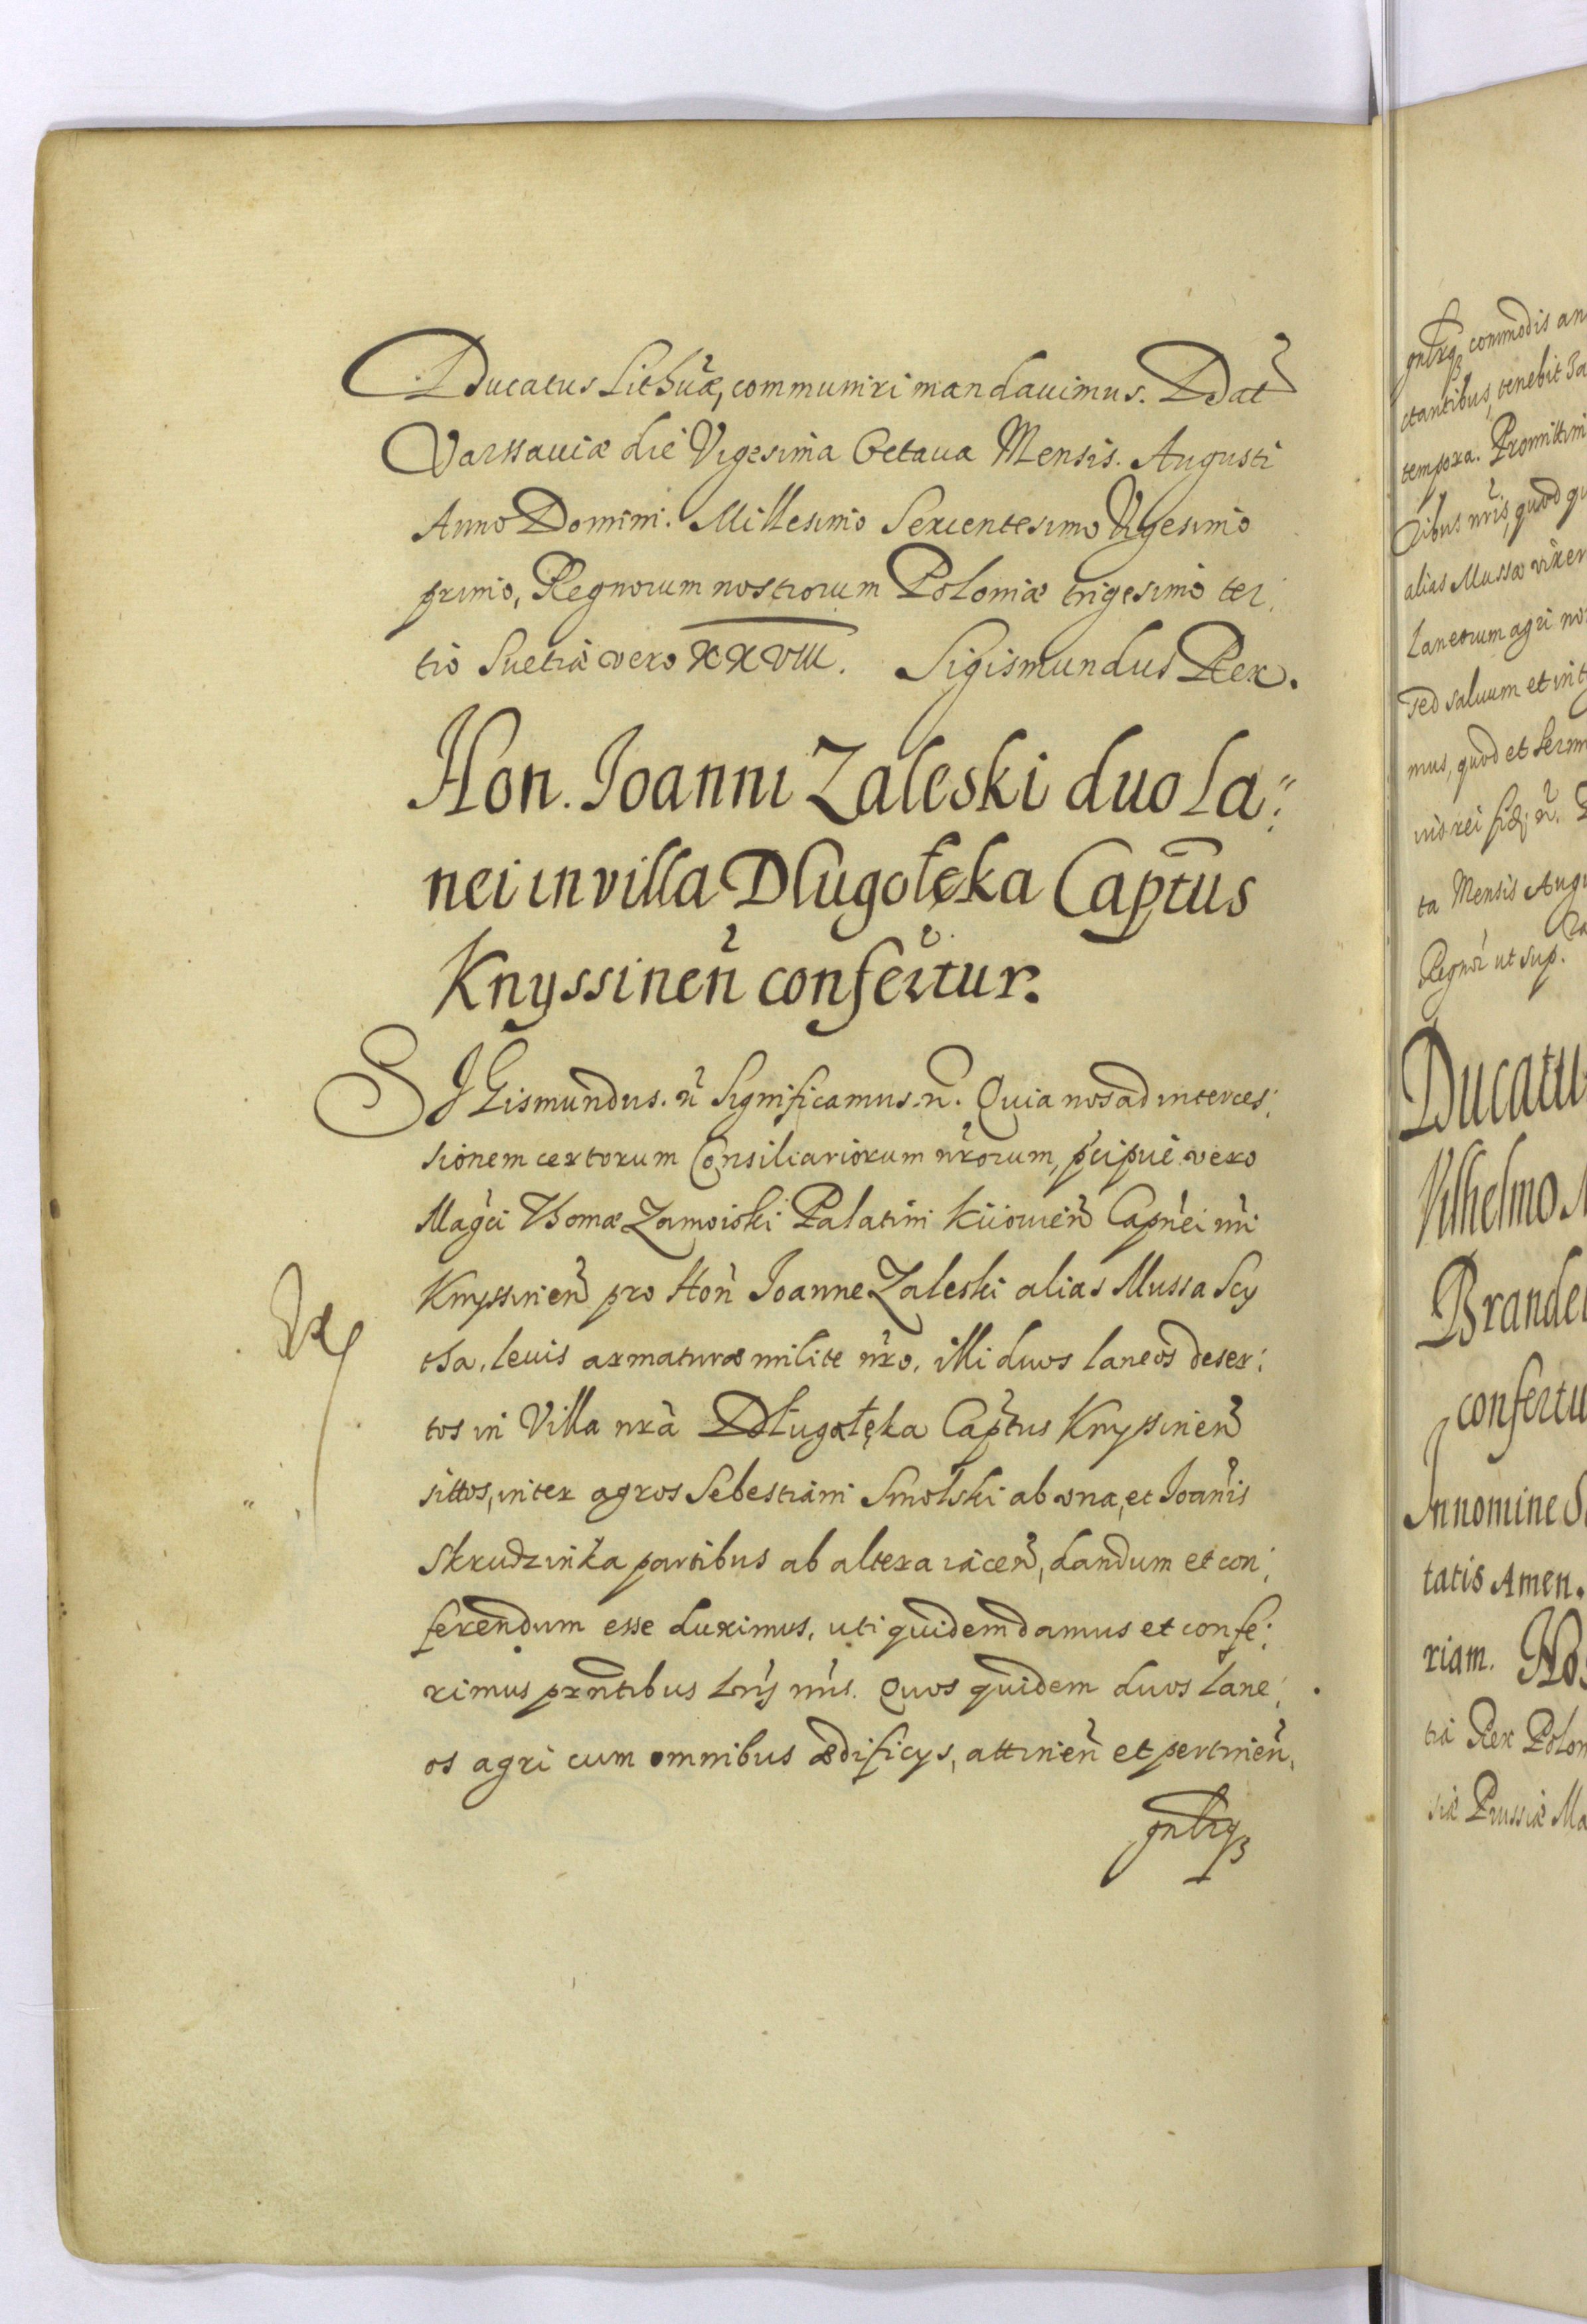 Ducatus Lithuæ, communiri mandauimus. Dat
Varssauiæ die Vigesima Octaua Mensis. Augusti
Anno Domini. Millesimo Sexcentesimo Vigesimo
primo, Regnorum nostrorum Poloniæ trigesimo ter:
tio Suetiæ vero XXVIII. Sigismundus Rex.
Hon. Ioanni Zaleski duo la:
nei in villa Dlugołęka Captus
Knyssinen confertur.
SIGismundus. n Significamus. n. Quia nos ad interces:
sionem certorum Consiliariorum nrorum, pcipue vero
Magci Thomæ Zamoiski Palatini Kiiouien Capnei nri
Knyssinen pro Hon Ioanne Zaleski alias Mussa Scy
tha, leuis armaturæ milite nro. illi duos laneos deser:
tos in Villa nra Długołęka Captus Knyssinen
sittos, inter agros Sebestiani Smolski ab vna, et Ioannis
Skrudzinka partibus ab altera iacen, dandum et con:
ferendum esse duximus, uti quidem damus et confe:
rimus prntibus Lris nris. Quos quidem duos Lane:
os agri cum omnibus ædificys, attinen et pertinen,
gnlrq
commodis an
ctantibus, tenebit
tempora. Promittim
ribus nris, quod qu
alias Mussæ vixer
Laneorum agri no
sed saluum et int
mus, quod et Sermi
ius rei fid. n.
ta Mensis Augu
Regnor ut sup.
Ducatu
Vilhelmo M
Brandeb
confertu
In nomine S
tatis Amen.
riam. Nos
tia Rex Polon
siæ Prussiæ Ma